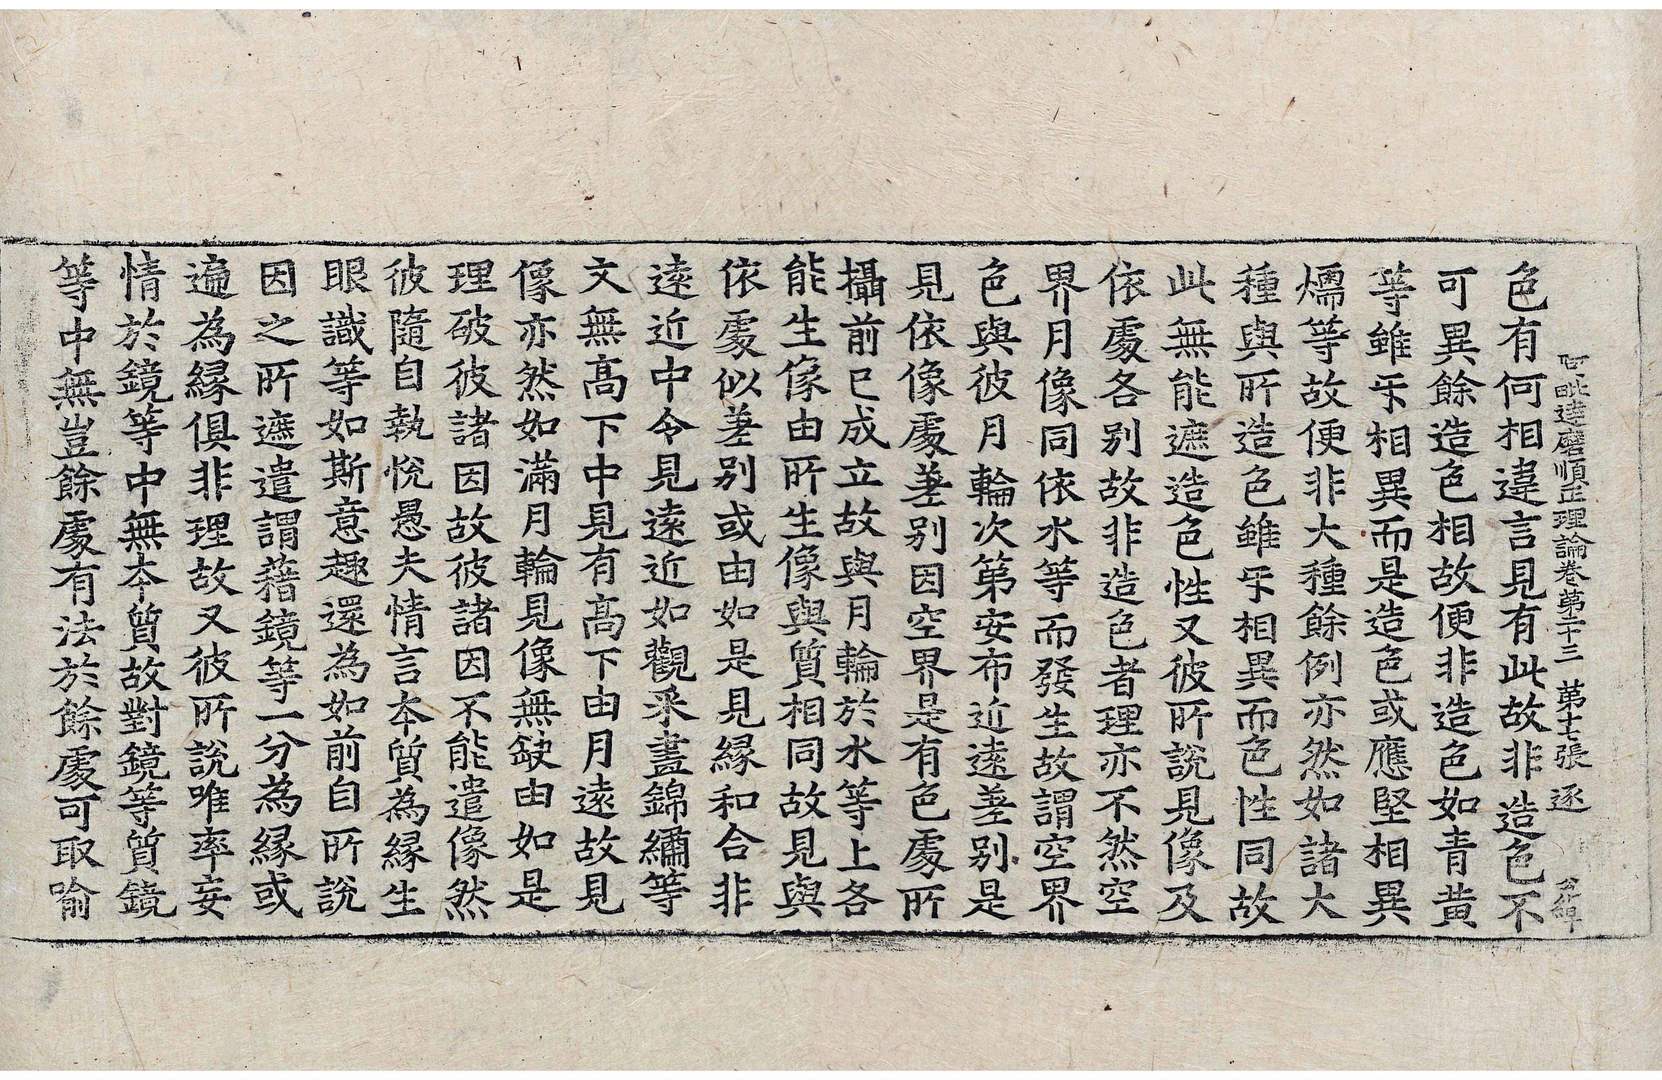 阿毗達磨順正理論卷第二十三 第十七張 逐
色有何相違言見有此故非造色不
可異餘造色相故便非造色如青黃
等雖𤓰相異而是造色或應堅相異
煗等故便非大種餘例亦然如諸大
種與所造色雖𤓰相異而色性同故
此無能遮造色性又彼所說見像及
依處各別故非造色者理亦不然空
界月像同依水等而發生故謂空界
色與彼月輪次第安布近遠差別是
見依像處差別因空界是有色處所
攝前已成立故與月輪於水等上各
能生像由所生像與質相同故見與
依處似差別或由如是見緣和合非
遠近中令見遠近如觀采畫錦繡等
文無高下中見有高下由月遠故見
像亦然如滿月輪見像無缺由如是
理破彼諸因故彼諸因不能遣像然
彼隨自執悅愚夫情言本質為緣生
眼識等如斯意趣還為如前自所說
因之所遮遣謂藉鏡等一分為緣或
遍為緣俱非理故又彼所說唯率妄
情於鏡等中無本質故對鏡等質鏡
等中無豈餘處有法於餘處可取喻